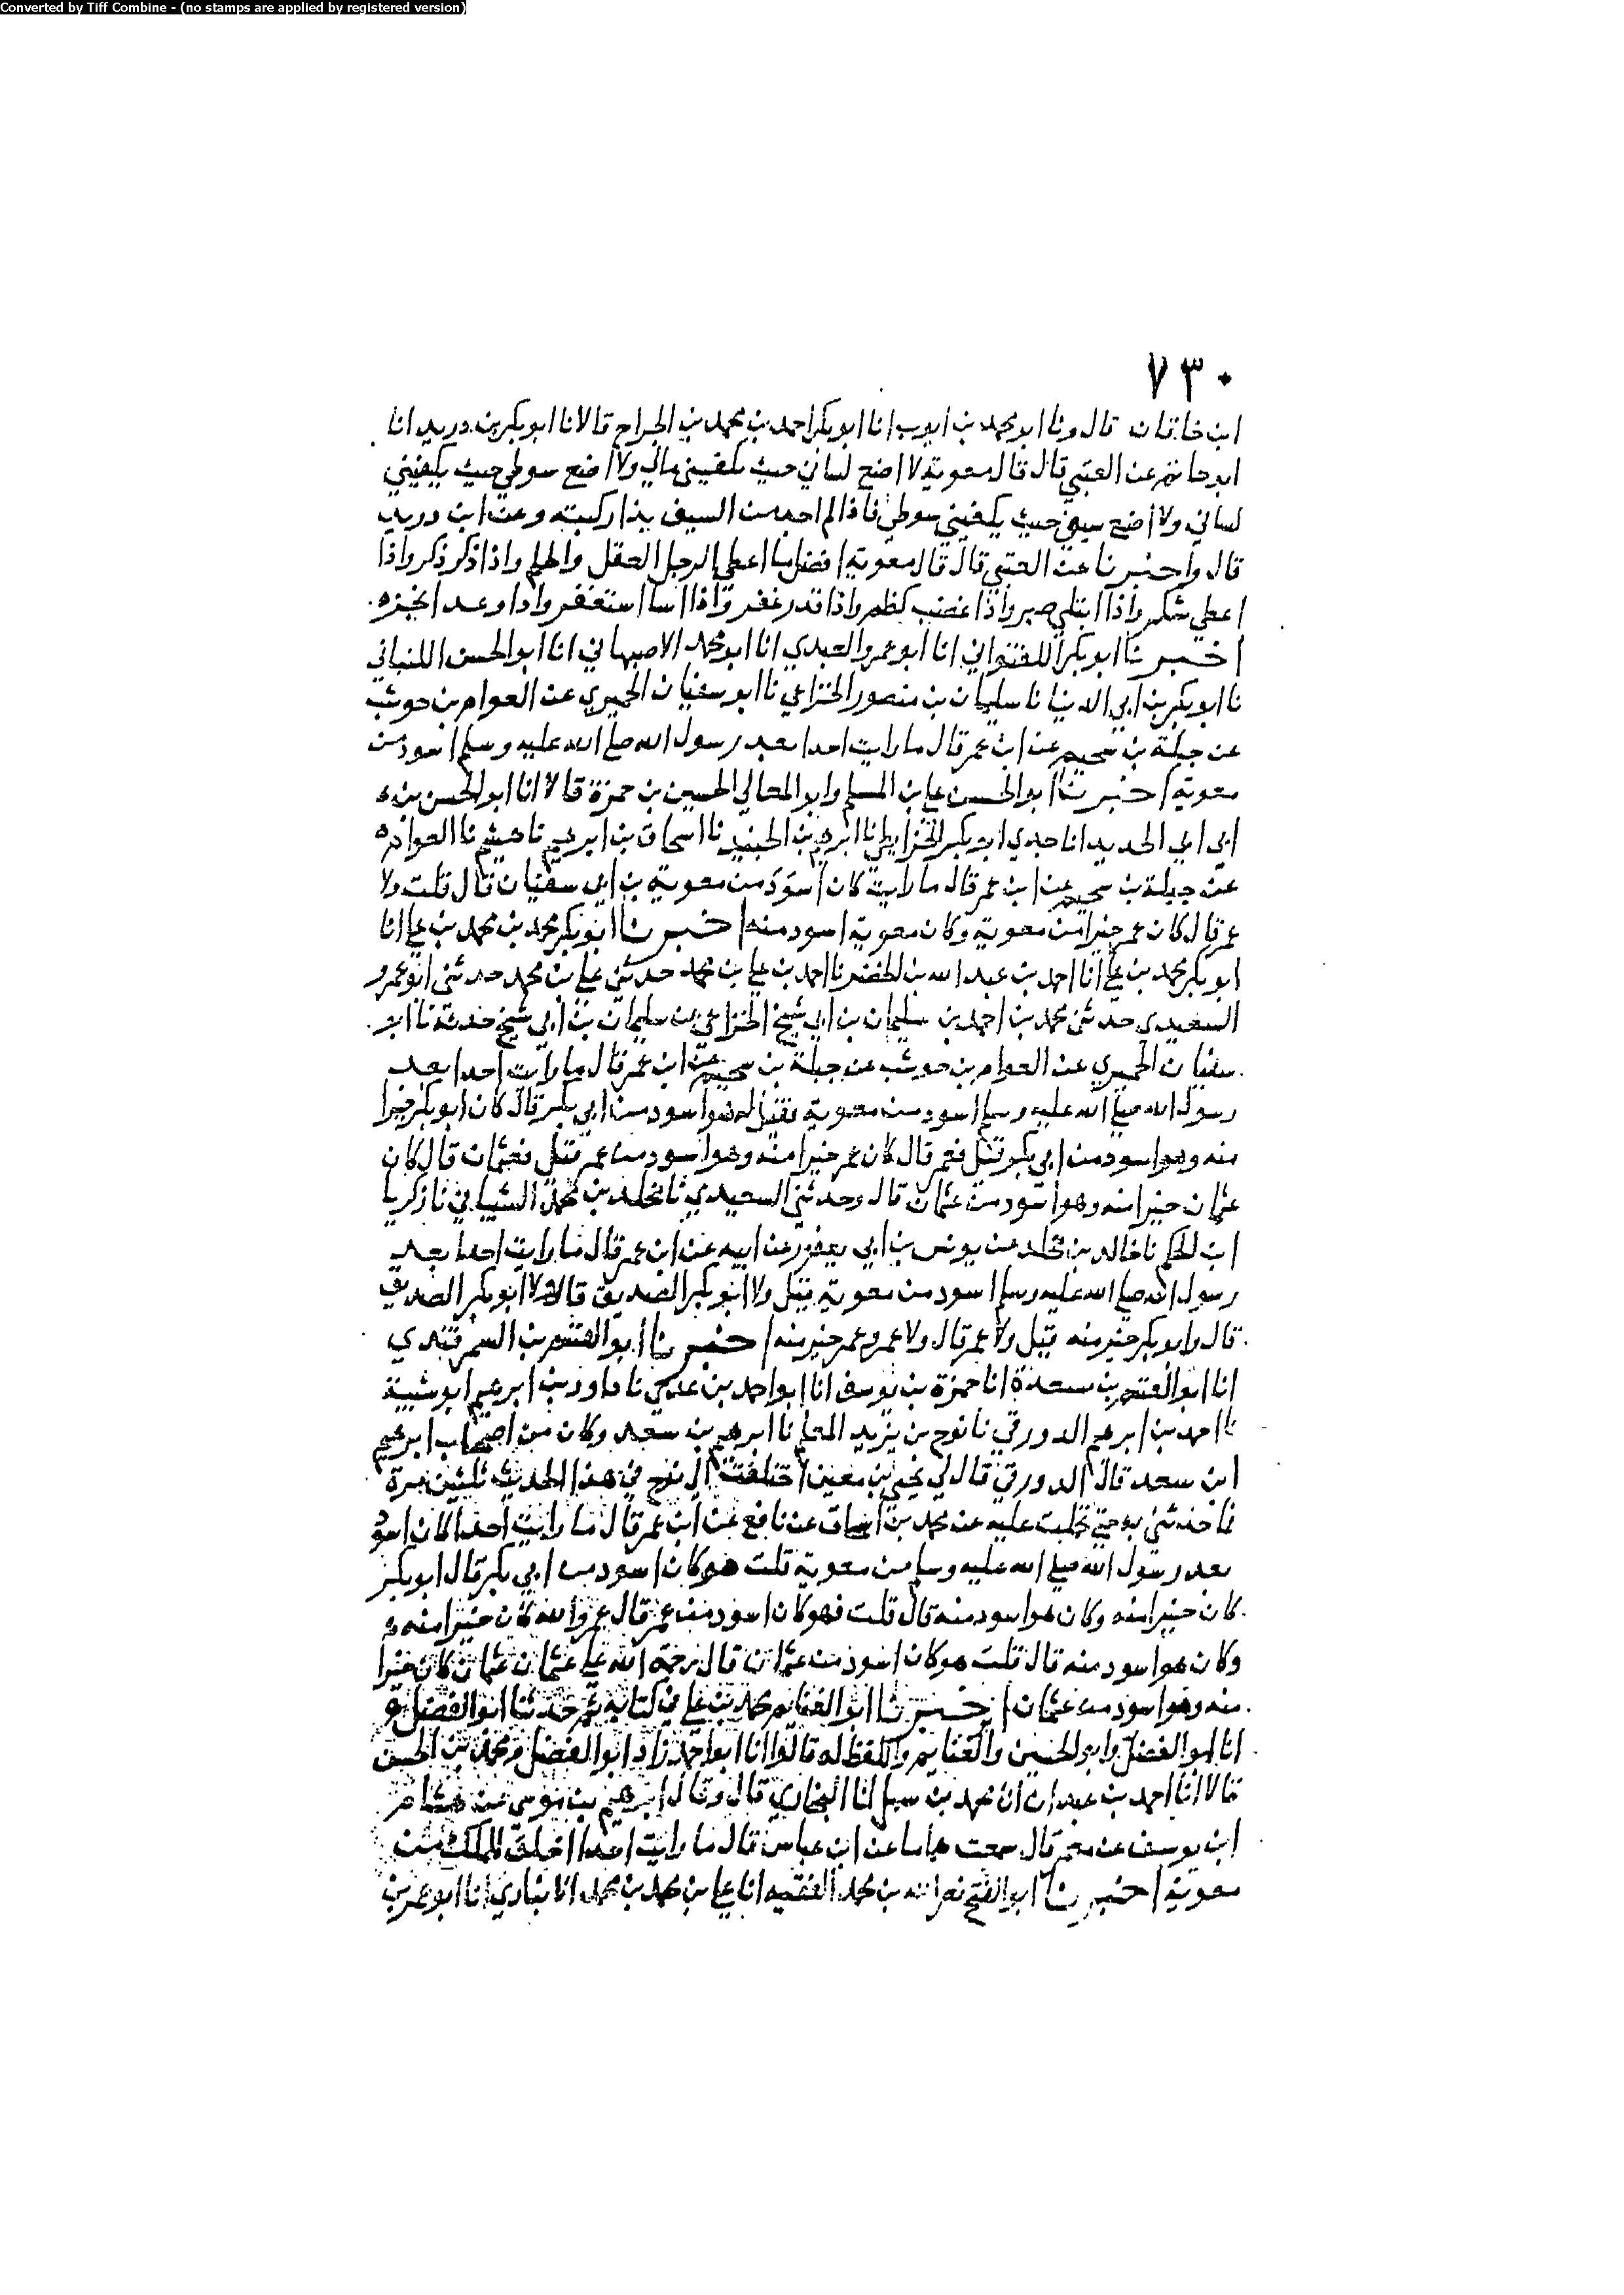 Converted by Tiff Combine - (no stamps are applied by registered version)
٧٣٠
ابن خاقان قال ونا ابو محمد بن ايوب انا ابو بكر احمد بن محمد بن الجراح قالا نا ابو بكر بن دريد انا
ابو حاتم عن العتبي قال قال معوية لا اضع لساني حيث يكفيني مالي ولا اضع سوطي حيث يكفيني
لساني ولا اضع سيفي حيث يكفيني سوطي فاذا لم احد من السيف بدا ركبته وعن ابن دريد
قال واخبرنا عن العتبي قال قال معوية افضل ما اعطي الرجل العقل والحلم واذا ذكر ذكر واذا
اعطي شكر واذا ابتلي صبر واذا غضب كظم واذا قدر غفر واذا اسا استغفر واذا وعد انجزه
اخبرنا ابو بكر اللفتواني انا ابو عمرو العبدي انا ابو محمد الاصبهاني انا ابو الحسن اللنباني
نا ابو بكر بن ابي الدنيا نا سليمان بن منصور الخزاعي نا ابو سفيان الحميري عن العوام بن حوشب
عن جبلة بن سحيم عن ابن عمر قال ما رايت احدا بعد رسول الله صلى الله عليه وسلم اسود من
معوية اخبرنا ابو الحسن علي بن المسلم وابو المعالي الحسين بن حمزة قالا انا ابو الحسن بن
ابي الحديد انا جدي ابو بكر الخرايطي نا ابرهيم بن الجنيد نا اسحاق بن ابرهيم نا هشيم نا العوام
عن جبلة بن سحيم عن ابن عمر قال ما رايت كان اسود من معوية بن ابي سفيان قال قلت ولا
عمر قال كان عمر خيرا من معوية وكان معوية اسود منه اخبرنا ابو بكر محمد بن محمد بن علي انا
ابو بكر محمد بن علي انا احمد بن عبد الله بن الخضر نا احمد بن علي بن محمد حدثني علي بن محمد حدثني ابو عمرو
السعيدي حدثني محمد بن احمد بن سليمان بن ابي شيخ الخزاعي عن سليمان بن ابي شيخ حدثه نا ابو
سفيان الحميري عن العوام بن حوشب عن جبلة بن سحيم عن ابن عمر قال ما رايت احدا بعد
رسول الله صلى الله عليه وسلم اسود من معوية فقيل له هو اسود من ابي بكر قال كان ابو بكر خيرا
منه وهو اسود من ابي بكر قيل فعمر قال كان عمر خيرا منه وهو اسود من عمر قيل فعثمان قال كان
عثمان خيرا منه وهو اسود من عثمان قال وحدثني السعيدي نا مخلد بن محمد الشيباني نا زكريا
ابن الحكم نا خالد بن مخلد عن يونس بن ابي يعفور عن ابيه عن ابن عمر قال ما رايت احدا بعد
رسول الله صلى الله عليه وسلم اسود من معوية قيل ولا ابو بكر الصديق قال ولا ابو بكر الصديق
قال وابو بكر خير منه قيل ولا عمر قال ولا عمر وعمر خير منه اخبرنا ابو القسم بن السمرقندي
انا ابو القسم بن سعدة انا حمزة بن يوسف انا ابو احمد بن عدي نا داود بن ابرهيم ابو شيبة
نا احمد بن ابرهيم الدورقي نا نوح بن يزيد المعلم نا ابرهيم بن سعد وكان من اصحاب ابرهيم
ابن سعد قال الدورقي قال لي يحيى بن معين اختلفت الى نوح في هذا الحديث ثلثين مرة
فما حدثني به حتى تحملت عليه عن محمد بن اسحاق عن نافع عن ابن عمر قال ما رايت احدا كان اسود
بعد رسول الله صلى الله عليه وسلم من معوية قلت هو كان اسود من ابي بكر قال ابو بكر
كان خيرا منه وكان هو اسود منه قال قلت فهو كان اسود من عمر قال عمر والله كان خيرا منه
وكان هو اسود منه قال قلت هو كان اسود من عثمان قال رحمة الله على عثمان عثمان كان خيرا
منه وهو اسود من عثمان اخبرنا ابو الغنايم محمد بن علي في كتابه ثم حدثنا ابو الفضل
انا ابو الفضل وابو الحسين والغنايم واللفظ له قالوا انا ابو احمد زاد ابو الفضل ومحمد بن الحسن
قالا انا احمد بن عبدان انا محمد بن سهل انا البخاري قال وقال ابرهيم بن موسى عن هشام
ابن يوسف عن معمر قال سمعت هماما عن ابن عباس قال ما رايت احدا اخلق للملك من
معوية اخبرنا ابو الفتح نصر الله بن محمد الفقيه انا علي بن محمد بن محمد الانباري انا ابو عمر بن